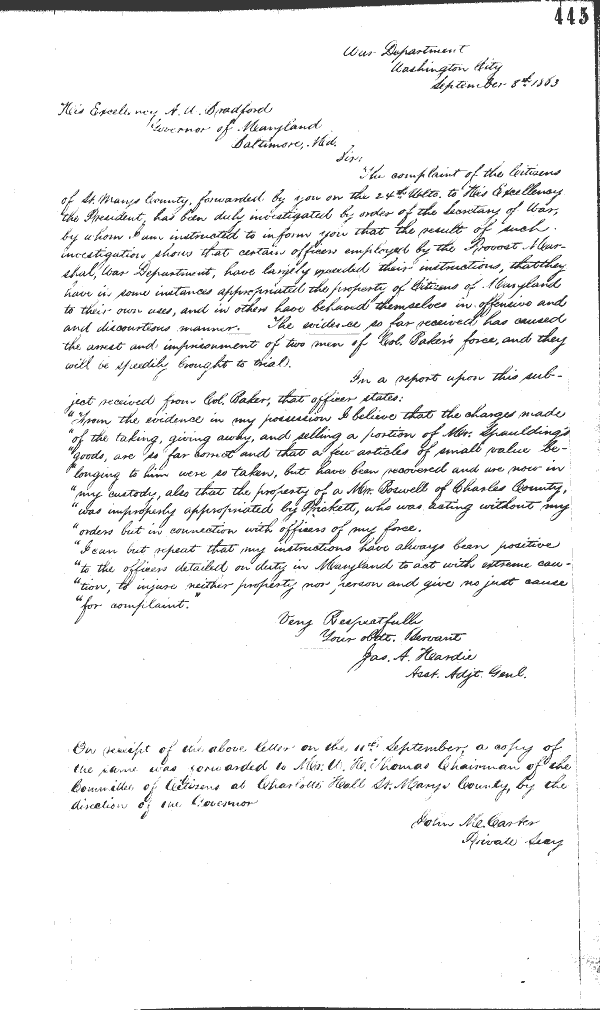 445
War Department
Washington City
September 8th 1863
His Excellency A. W. Bradford
Governor of Maryland
Baltimore, Md.
Sir:
The complaint of the Citizens
of St. Marys County, forwarded by you on the 24th Ulto. to His Excellency
the President, has been duly investigated by order of the Secretary of War,
by whom I am instructed to inform you that the result of such
investigation shows that certain officers employed by the Provost Mar-
shal, War Department, have largely exceeded their instructions, that they
have in some instances appropriated the property of Citizens of Maryland
to their own uses, and in others have behaved themselves in offensive and
and discourtious manner. The evidence so far received has caused
the arrest and imprisonment of two men of Col. Baker's force, and they
will be speedily brought to trial.
In a report upon this sub-
ject received from Col. Baker, that officer states:
"From the evidence in my possession I believe that the charges made
"of the taking, giving away, and selling a portion of Mr. Spaulding's
"goods, are so far and that a few articles of small value be-
"longing to him were so taken, but have been recovered and are now in
"my custody, also that the property of a Mr. Boswell of Charles County,
"was improperly appropriated by Prickett, who was acting without my
"orders but in connection with officers of my force.
"I can but repeat that my instructions have always been positive
"to the officers detailed on duty in Maryland to act with extreme cau-
"tion, to injure neither property nor person and give no just cause
"for complaint."
Very Respectfully
Your obdt. Servant
Jas. A. Hardie
Asst. Adjt. Genl.
On receipt of the above letter on the 11th September, a copy of
the same was forwarded to Mr. Thomas Chairman of the
Committee of Citizens at Charlotte Hall St. Marys County, by the
direction of the Governor
John M. Carter
Private Secy